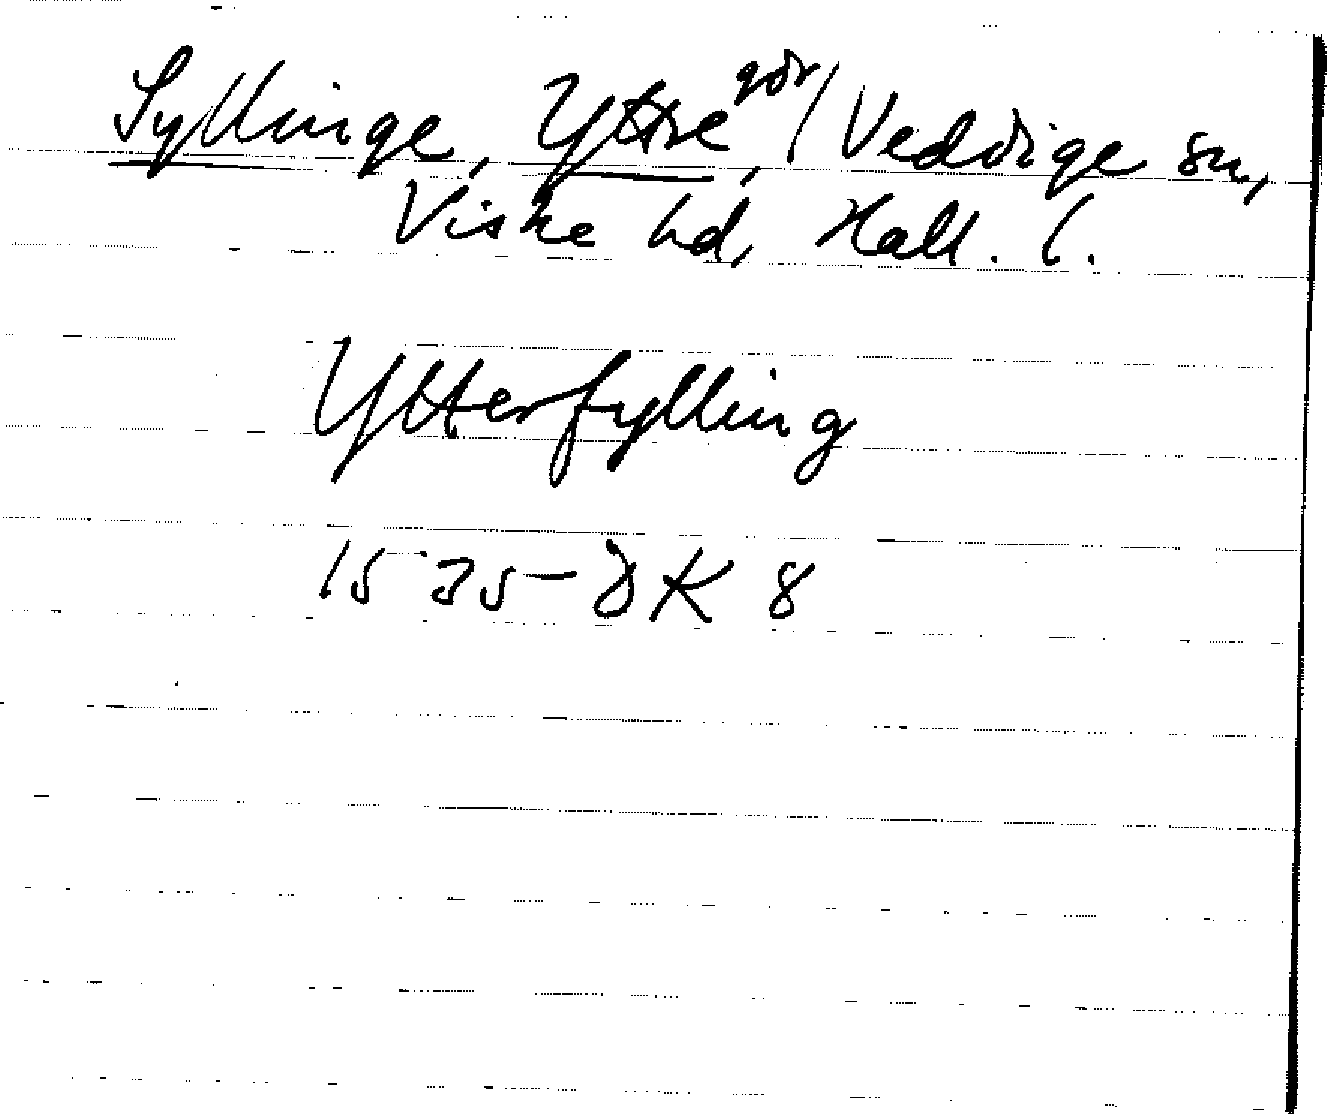 Syllinge, Yttre, går/ Veddige sn,
Viske hd, Hall. l.
Ytterfylling
1535 - DK 8